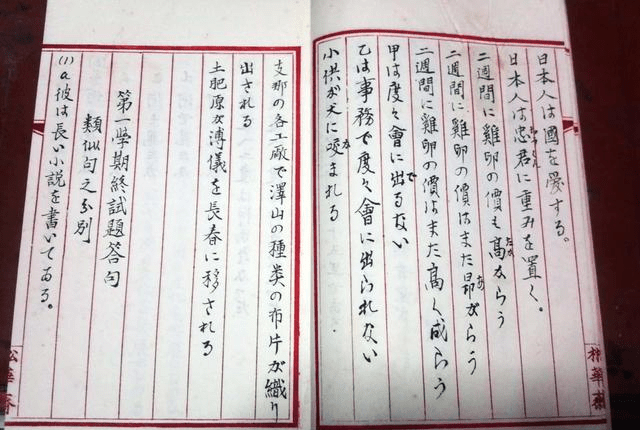 日本人は國を愛する。
日本人は忠君に重みを置く。
二週間に雞卵の價も高からう
二週間に雞卵の價はまた昂がらう
二週間に雞卵の價はまた高く成らう
甲は度々會に出ない
乙は事務で度々會に出られない
小供が犬に咬まれる
支那の各工廠で澤山の種类の布片が織り
出される
土肥原が溥儀を長春に移される
第一學期終試題答句
類似句之分別
(1) a 彼は長い小説を書いてゐる。